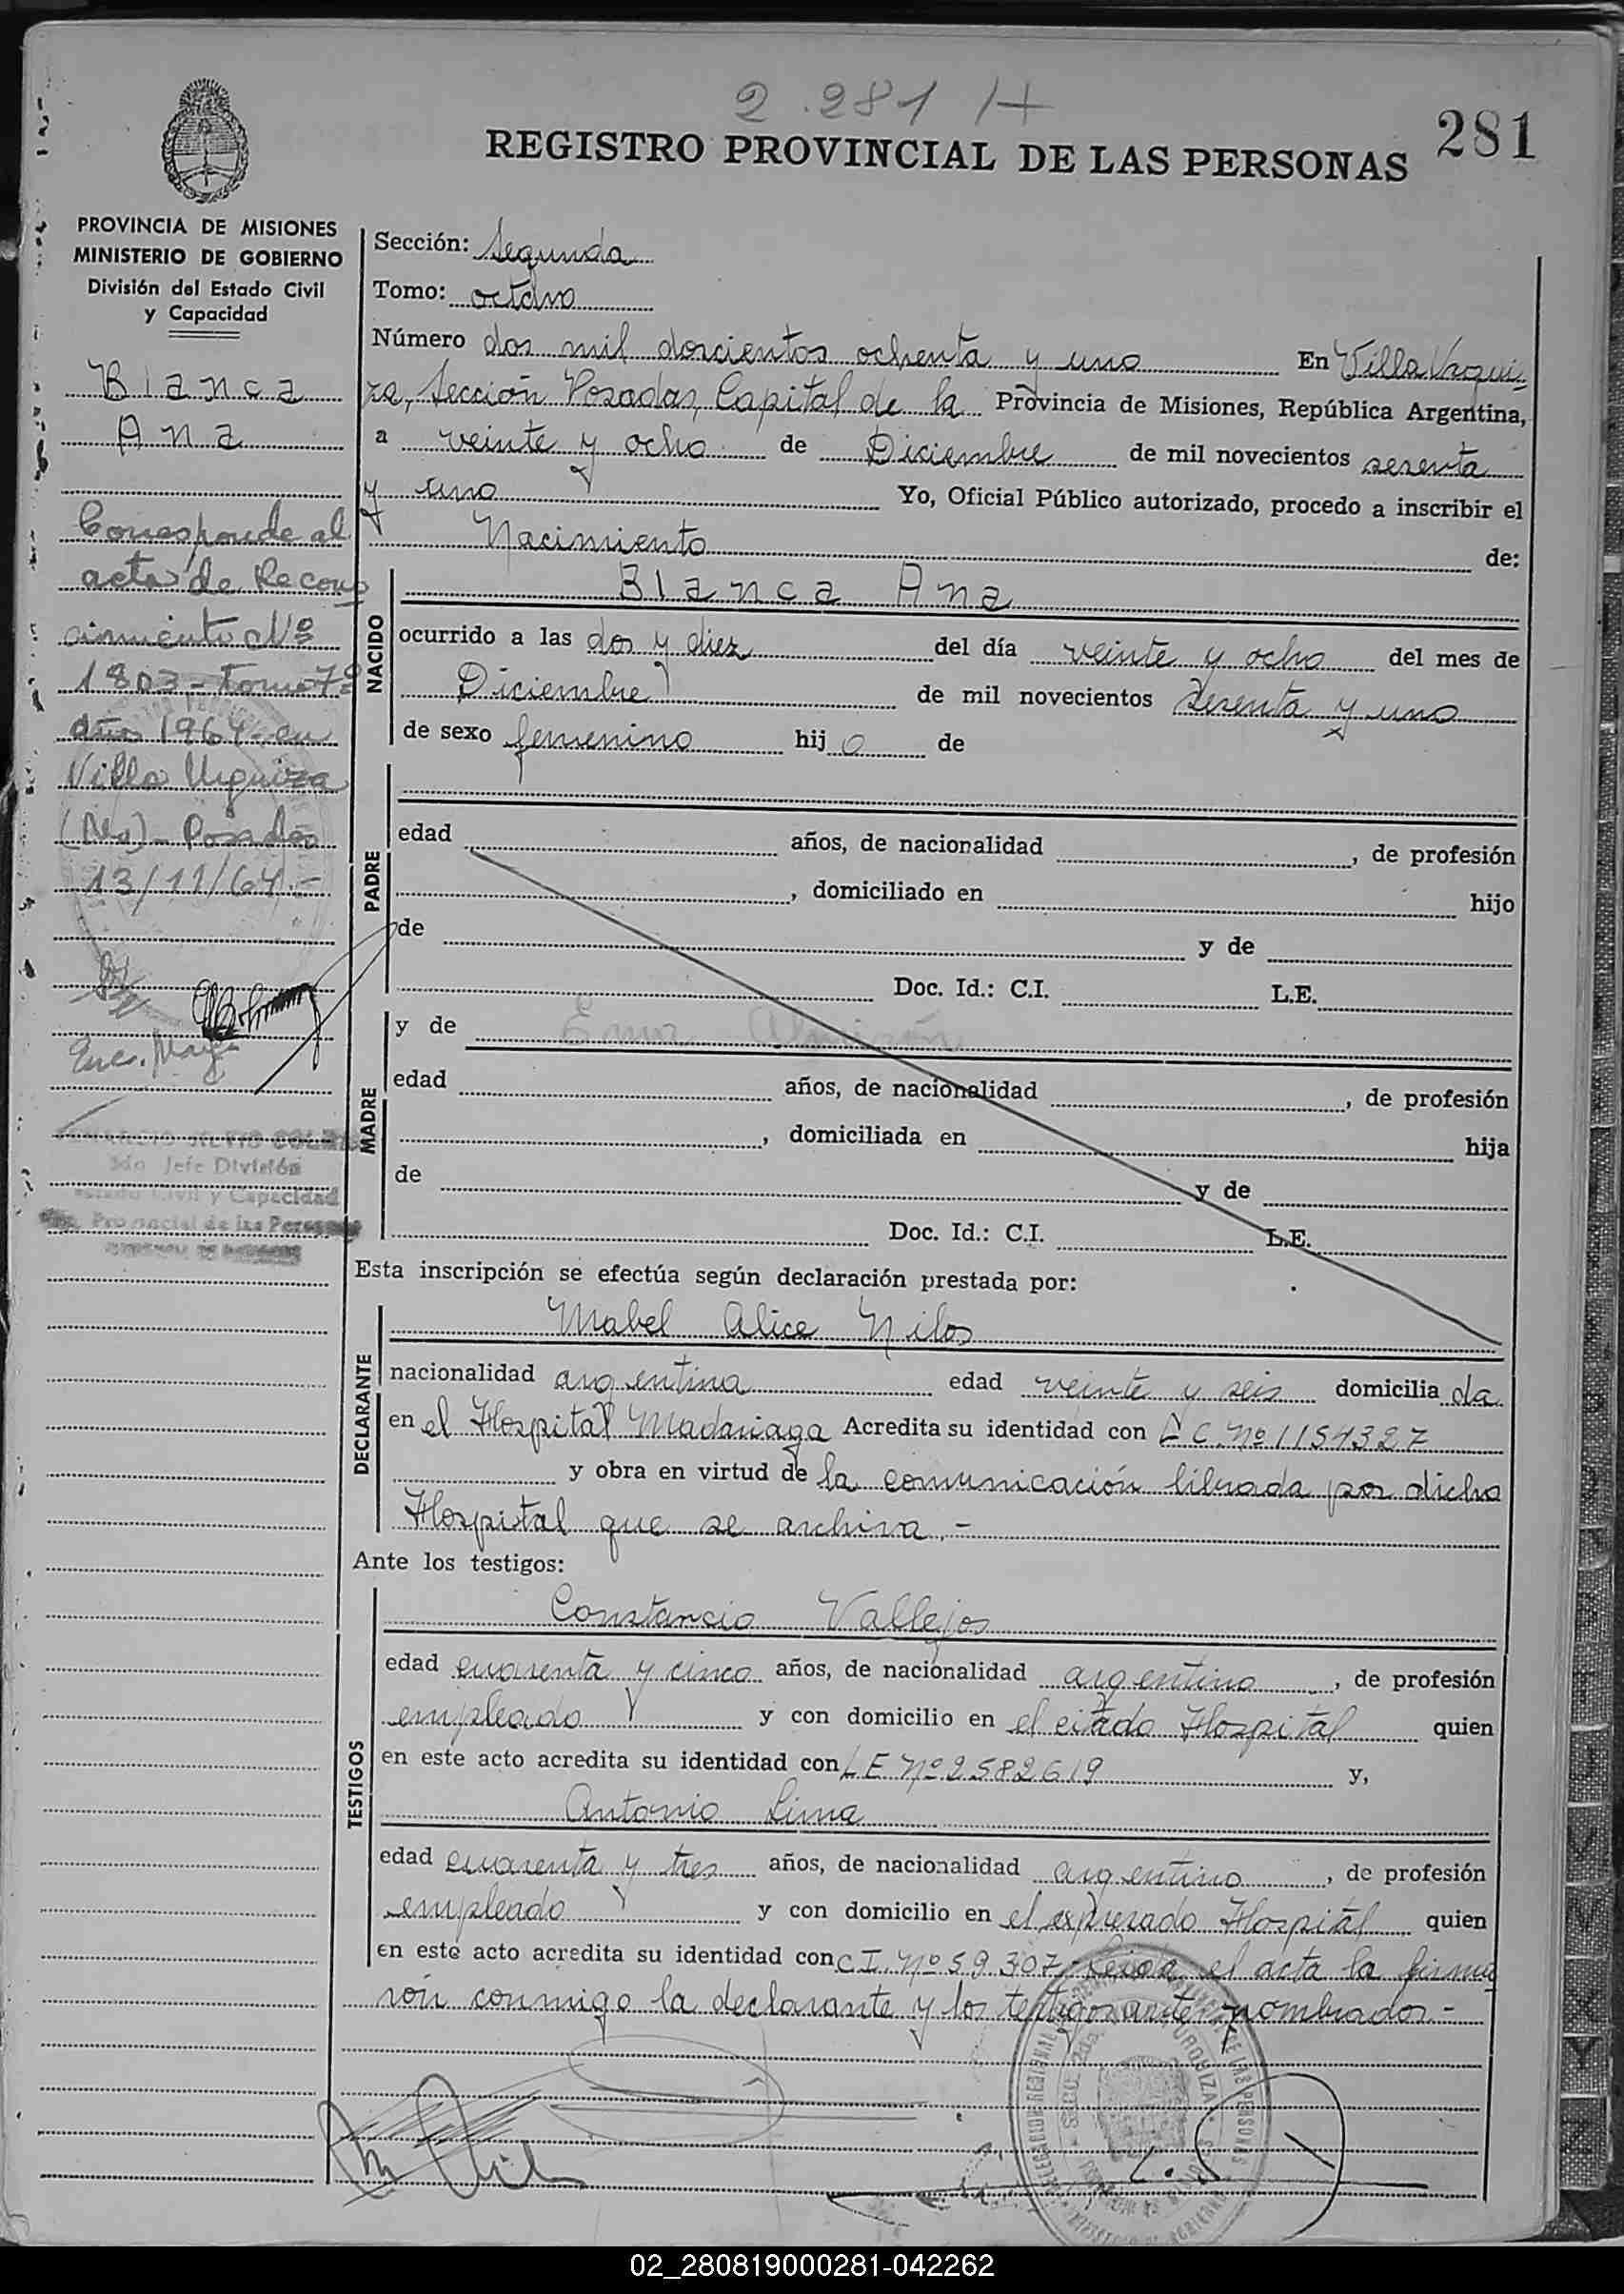 2.281 H
REGISTRO PROVINCIAL DE LAS PERSONAS 281
PROVINCIA DE MISIONES
MINISTERIO DE GOBIERNO
División del Estado Civil
y Capacidad
Blanca
Ana
Corresponde al
acta de Recono
cimiento Nº
1803,- Tomo 7º
año 1964- en
Villa Urquiza
- Posadas
13/11/64.-
Enc. Mayo
Jefe División
Estado Civil y Capacidad
Provincial de las Personas
Sección: Segunda
Tomo: octavo
Número dos mil doscientos ochenta y uno En Villa Urqui-
za, Sección Posadas, Capital de la Provincia de Misiones, República Argentina,
a veinte y ocho de Diciembre de mil novecientos sesenta
y uno Yo, Oficial Público autorizado, procedo a inscribir el
Nacimiento de:
NACIDO
Blanca Ana
ocurrido a las dos y diez del día veinte y ocho del mes de
Diciembre de mil novecientos sesenta y uno
de sexo femenino hij a de
PADRE
edad años, de nacionalidad , de profesión
, domiciliado en hijo
de y de
Doc. Id.: C.I. L.E.
MADRE
y de Ema Almirón
edad años, de nacionalidad , de profesión
, domiciliada en hija
de y de
Doc. Id.: C.I. L.E.
Esta inscripción se efectúa según declaración prestada por:
DECLARANTE
Mabel Alice Nilos
nacionalidad argentina edad veinte y seis domicilia da
en el Hospital Madariaga Acredita su identidad con L C. Nº 1154327
y obra en virtud de la comunicación librada por dicho
Hospital que se archiva.-
Ante los testigos:
TESTIGOS
Constancio Vallejos
edad cuarenta y cinco años, de nacionalidad argentino, de profesión
empleado y con domicilio en el citado Hospital quien
en este acto acredita su identidad con L E Nº 2582619 y,
Antonio Lima
edad cuarenta y tres años, de nacionalidad argentino, de profesión
empleado y con domicilio en el expresado Hospital quien
en este acto acredita su identidad con C I. Nº 59.307,- Leida el acta la firma
rón conmigo la declarante y los testigos antes nombrados.-
02_280819000281-042262